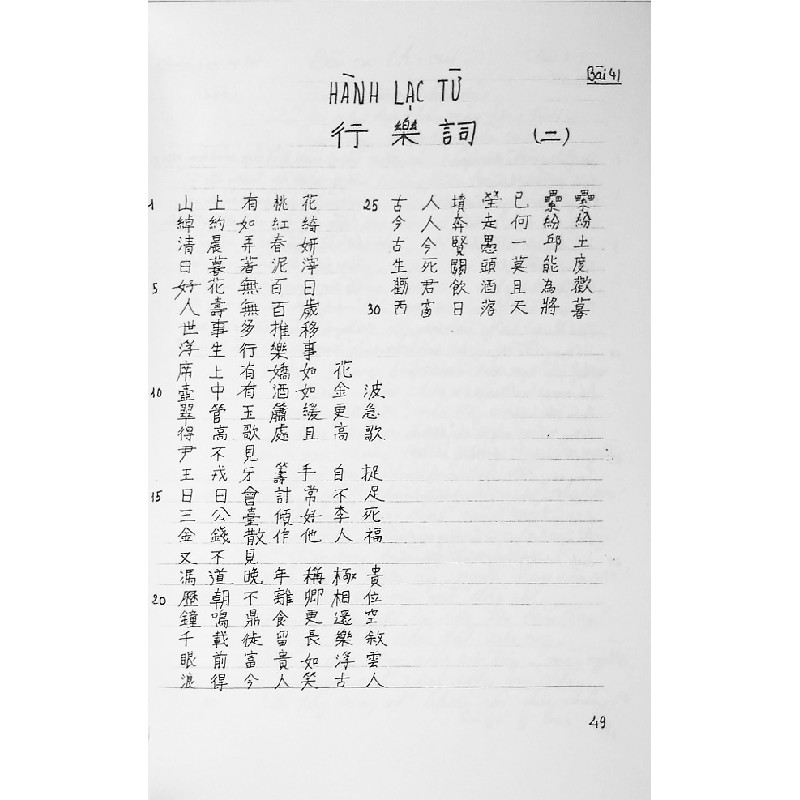 Bài 41
HÀNH LẠC TỪ
行樂詞 (二)
1 山上有桃花
綽約如紅綺
清晨弄春妍
日暮著泥滓
5 好花無百日
人壽無百歲
世事多推移
浮生行樂事
席上有嬌如花
10 壺中有酒如金波
翠管玉簫緩更急
得高歌處且高歌
尹不見
王戎牙籌手自捉
15 日日會計常不足
三公臺傾好李死
金錢散作他人福
又不見
馮道晚年稱極貴
20 歷朝不離卿相位
鐘鳴鼎食更還空
千載徒留長樂敘
眼前富貴如浮雲
浪得今人笑古人
25 古人墳塋已纍纍
今人奔走何紛紛
古今賢愚一邱土
生死關頭莫能度
勸君飲酒且為歡
30 西窗日落天將暮
49